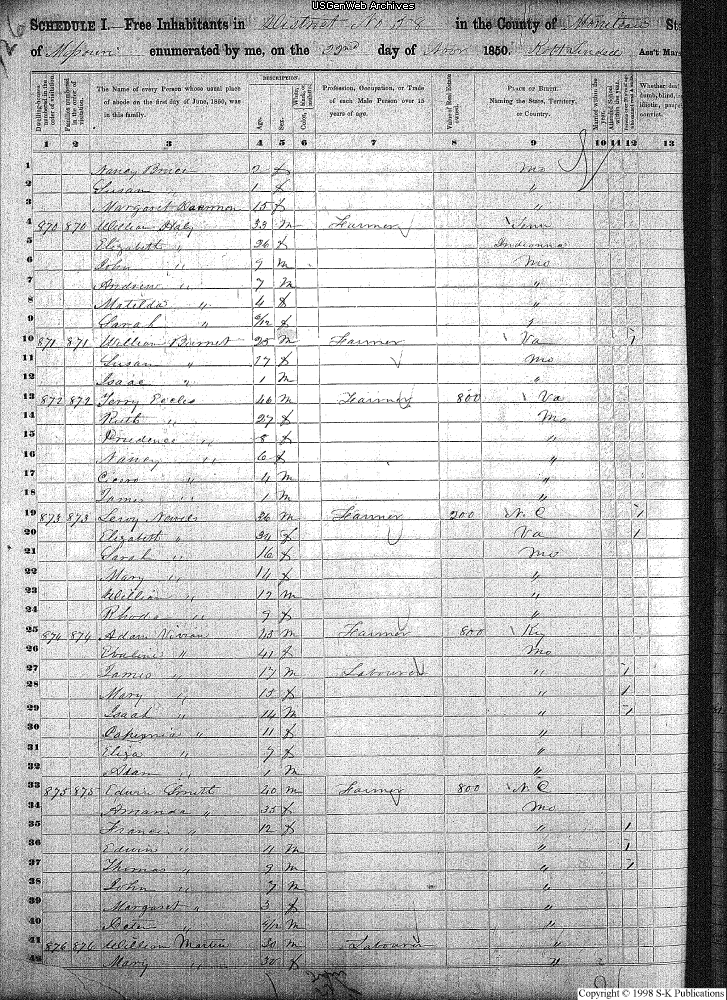 USGenWeb Archives
SCHEDULE I. Free Inhabitants in District No 58 in the County of
of Missouri enumerated by me, on the 22nd day of Novr 1850. Ass't Mars
DESCRIPTION.
Dwelling-houses numbered in the order of visitation.
Families numbered in the order of visitation.
The Name of every Person whose usual place of abode on the first day of June, 1850, was in this family.
Age.
Sex.
White, black, or mulatto.
Color,
Profession, Occupation, or Trade of each Male Person over 15 years of age.
Value of Real Estate owned.
PLACE OF BIRTH. Naming the State, Territory, or Country.
Married within the year.
Whether deaf
1 2 3 4 5 6 7 8 9 10 11 12 13
1 Nancy Bruce 2 f Mo
2 Susan 1 f "
3 Margaret 15 f "
4 870 870 William Haly 33 m Farmer Tenn
5 Elizabeth " 26 f Indianna
6 John " 9 m Mo
7 Andrew " 7 m "
8 Matilda " 4 f "
9 Sarah " f "
10 871 871 William Burnet 25 m Farmer Va 1
11 Susan " 17 f Mo
12 Isaac " 1 m "
13 872 872 Terry Eccles 46 m Farmer 800 Va
14 Ruth " 27 f Mo
15 Prudence " 8 f "
16 Nancy " 6 f "
17 Cicero " 4 m "
18 James " 1 m "
19 873 873 Leroy 36 m Farmer 200 N.C 1
20 Elizabeth " 34 f Va 1
21 Sarah " 16 f Mo
22 Mary " 14 f "
23 William " 12 m "
24 Rhoda " 9 f "
25 874 874 Adam Vivian 43 m Farmer 800 Ky
26 Evaline " 41 f Mo
27 James " 17 m Labourer " 1
28 Mary " 15 f " 1
29 Isaah " 14 m " 1
30 " 11 f "
31 Eliza " 7 f "
32 Adam " 1 m "
33 875 875 Edwin Smith 40 m Farmer 800 N.C
34 Amanda " 35 f Mo
35 Francis " 12 f " 1
36 Edwin " 11 m " 1
37 Thomas " 9 m " 1
38 John " 7 m "
39 Margaret " 3 f "
40 Peter " m "
41 876 876 William Martin 30 m Labourer "
42 Mary " 30 f "
Copyright © 1998 S-K Publications